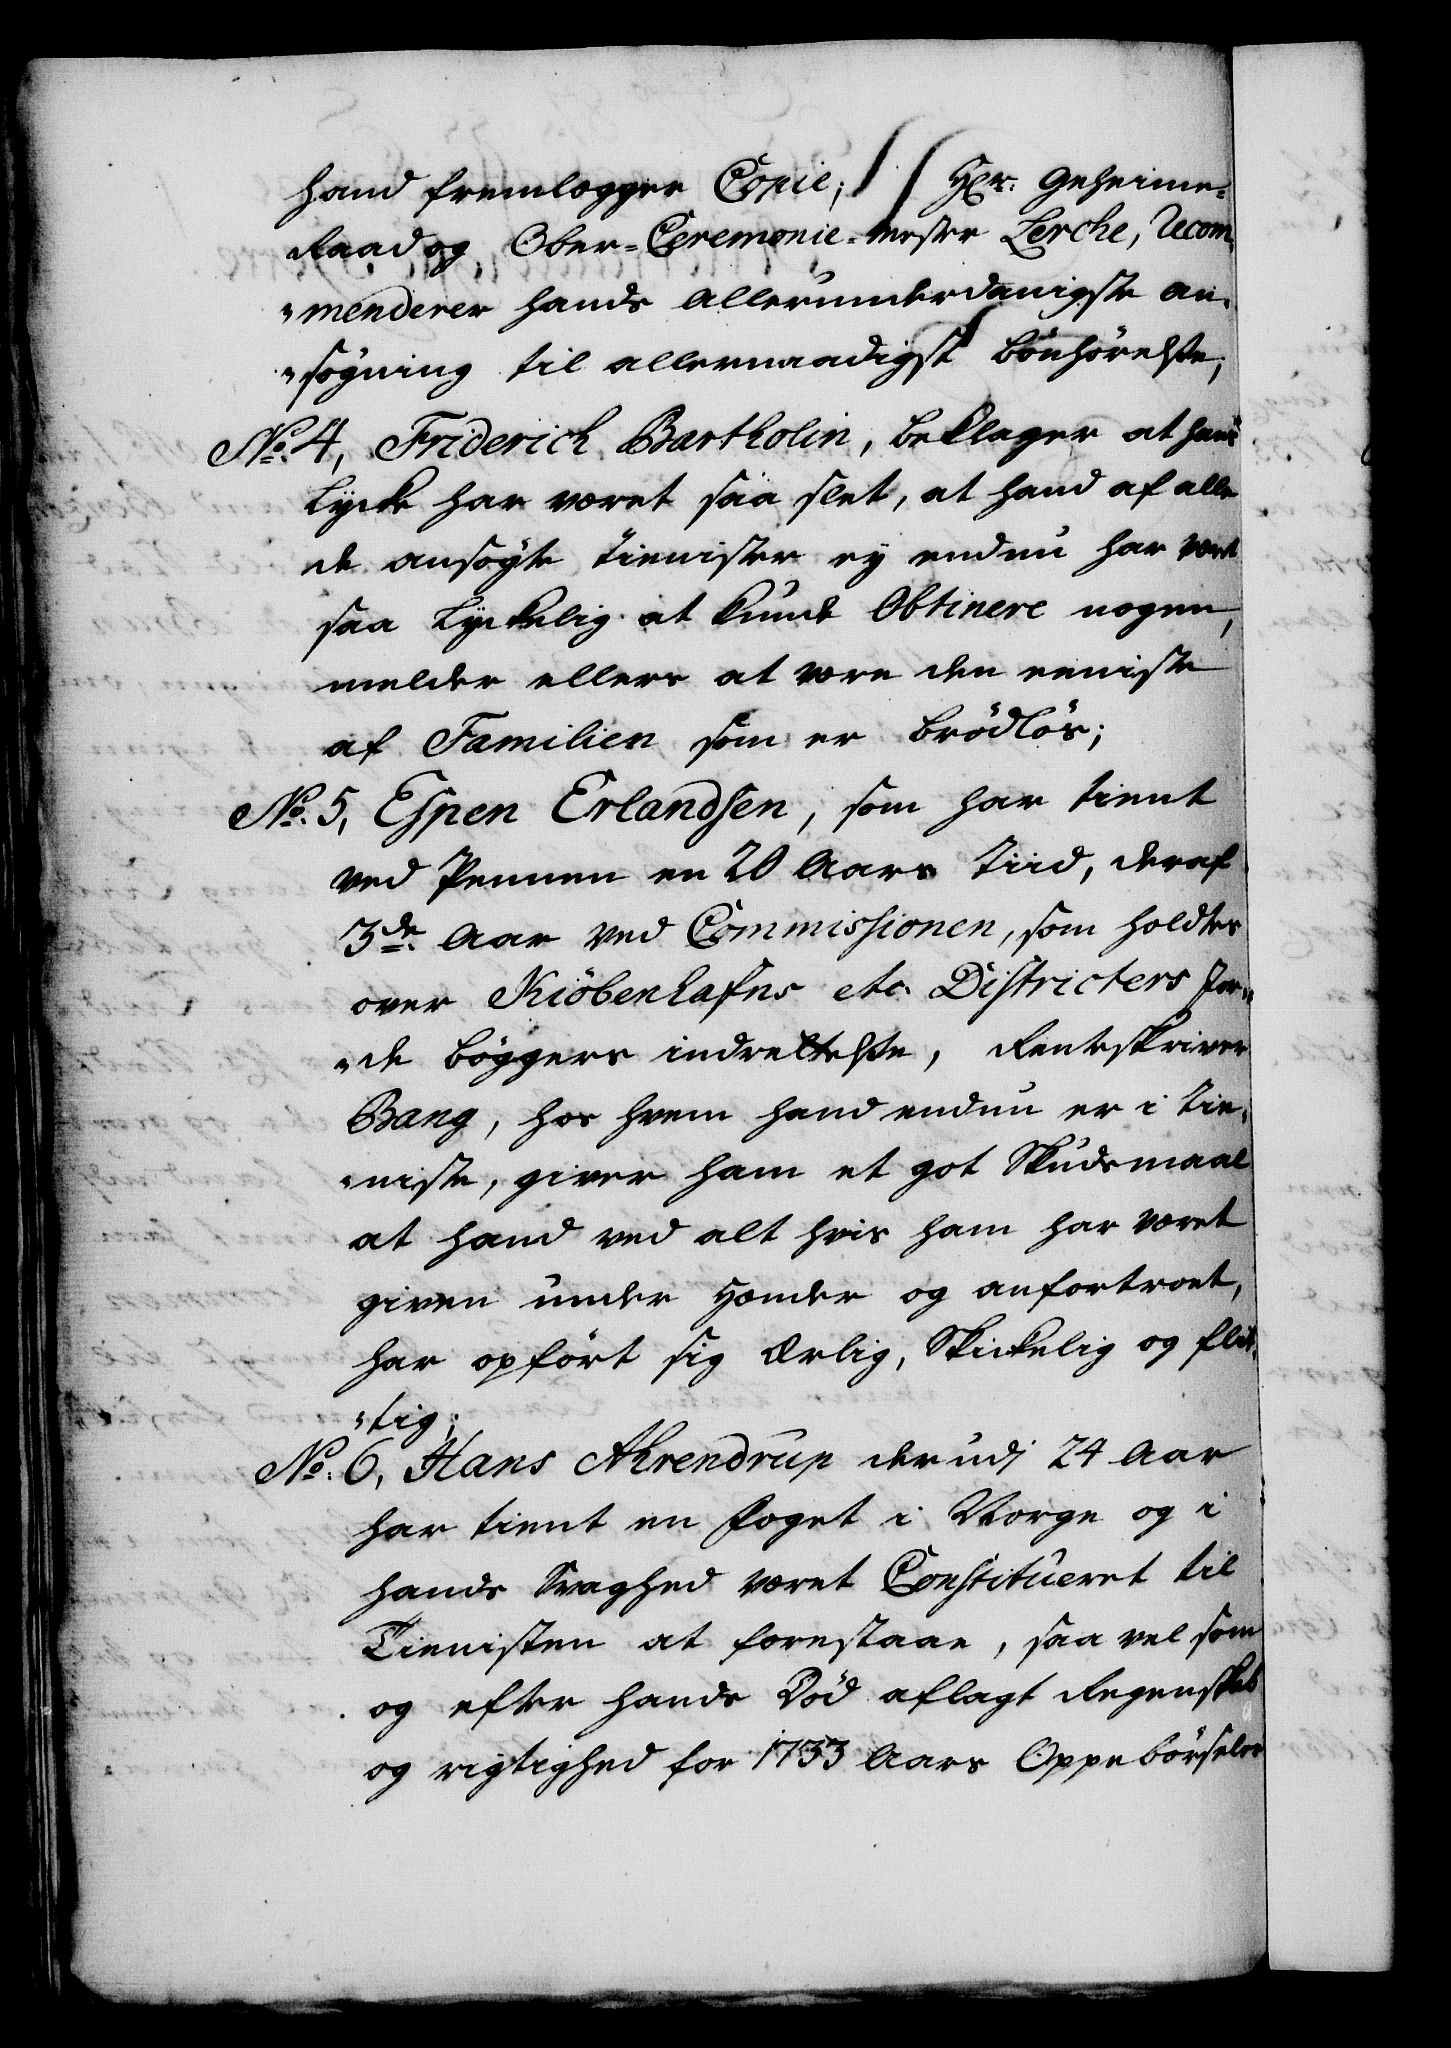 hand fremlægger Copie; Hr: Geheime-
Raad og Ober-Ceremonie-Mester Lerche, Recom-
"menderer hands allerunderdanigste an-
"søgning til allernaadigst bönhörelse;
No. 4, Friderich Bartholin, beklager at hans
Lycke har været saa slet, at hand af alle
de ansøgte tienister ey endnu har vært
saa Lyckelig at kunde Obtinere nogen,
melder ellers at være den eeniste
af Familien som er brödlös;
No. 5, Espen Erlandsen, som har tient
ved Pennen en 20 Aars Tiid, deraf
3de Aar ved Commissionen, som holdtes
over Kiöbenhafns etc. Districters Jor-
"de bøggers indrettelse, Rentskriver
Bang, hos hvem hand endnu er i tie-
"niste, giver ham et got Skudsmaal
at hand ved alt hvis ham har været
given under Hænder og anfortroet,
har opført sig Ærlig, Skickelig og flit-
"tig;
No. 6, Hans Ahrendrup der udj 24 Aar
har tient en Foget i Norge og i
hands Svaghed været Constitueret til
Tienisten at forestaae, saa vel som
og efter hands Död aflagt Regenskab
og rigtighed for 1733 Aars Oppebörseler